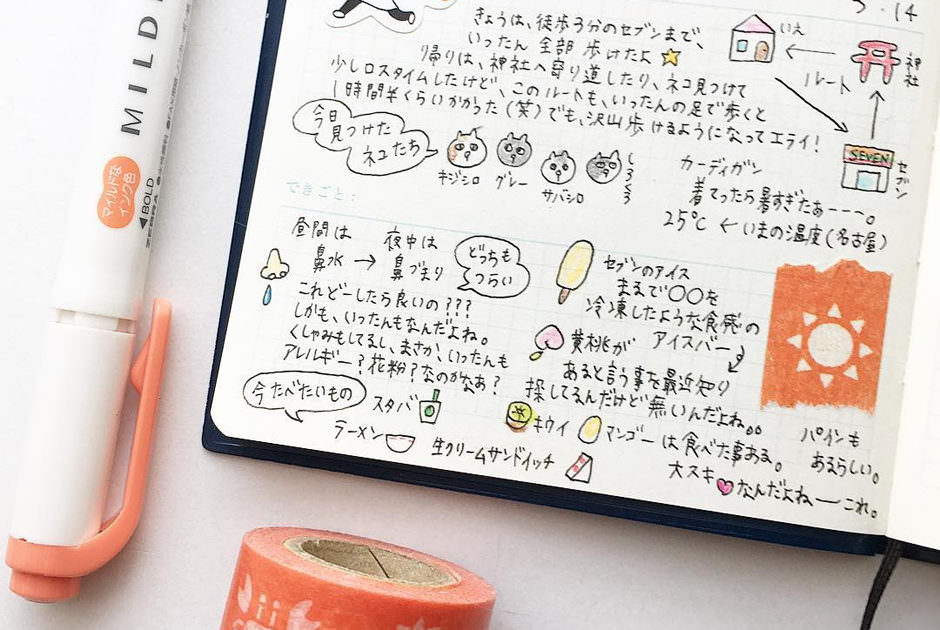 5.14
きょうは、徒歩3分のセブンまで、
いったん 全部 歩けたよ
帰りは、神社へ寄り道したり、ネコ見つけて
少しロスタイムしたけど、このルートも、いったんの足で歩くと
1時間半くらいかかった(笑)でも、沢山歩けるようになってエライ!
いえ
神社
ルート
SEVEN
セブン
今日
見つけた
ネコたち
キジシロ
グレー
サバシロ
しろくろ
カーディガン
着てったら暑すぎたぁーーー。
25℃ ←いまの温度(名古屋)
できごと:
昼間は
鼻水 →
夜中は
鼻づまり
どっちも
つらい
これどーしたら良いの???
しかも、いったんもなんだよね。
くしゃみもしてるし、まさか、いったんも
アレルギー?花粉?なのかなぁ?
今たべたいもの
スタバ
ラーメン
生クリームサンドイッチ
セブンのアイス
まるで〇〇を
冷凍したような食感の
アイスバー
黄桃が
あると言う事を最近知り
探してるんだけど無いんだよね。。
キウイ
マンゴー は食べた事ある。
パインも
あるらしい。
大スキ なんだよねーーこれ。
MILD
マイルドな
インク色
◀BOLD
ZEBRA